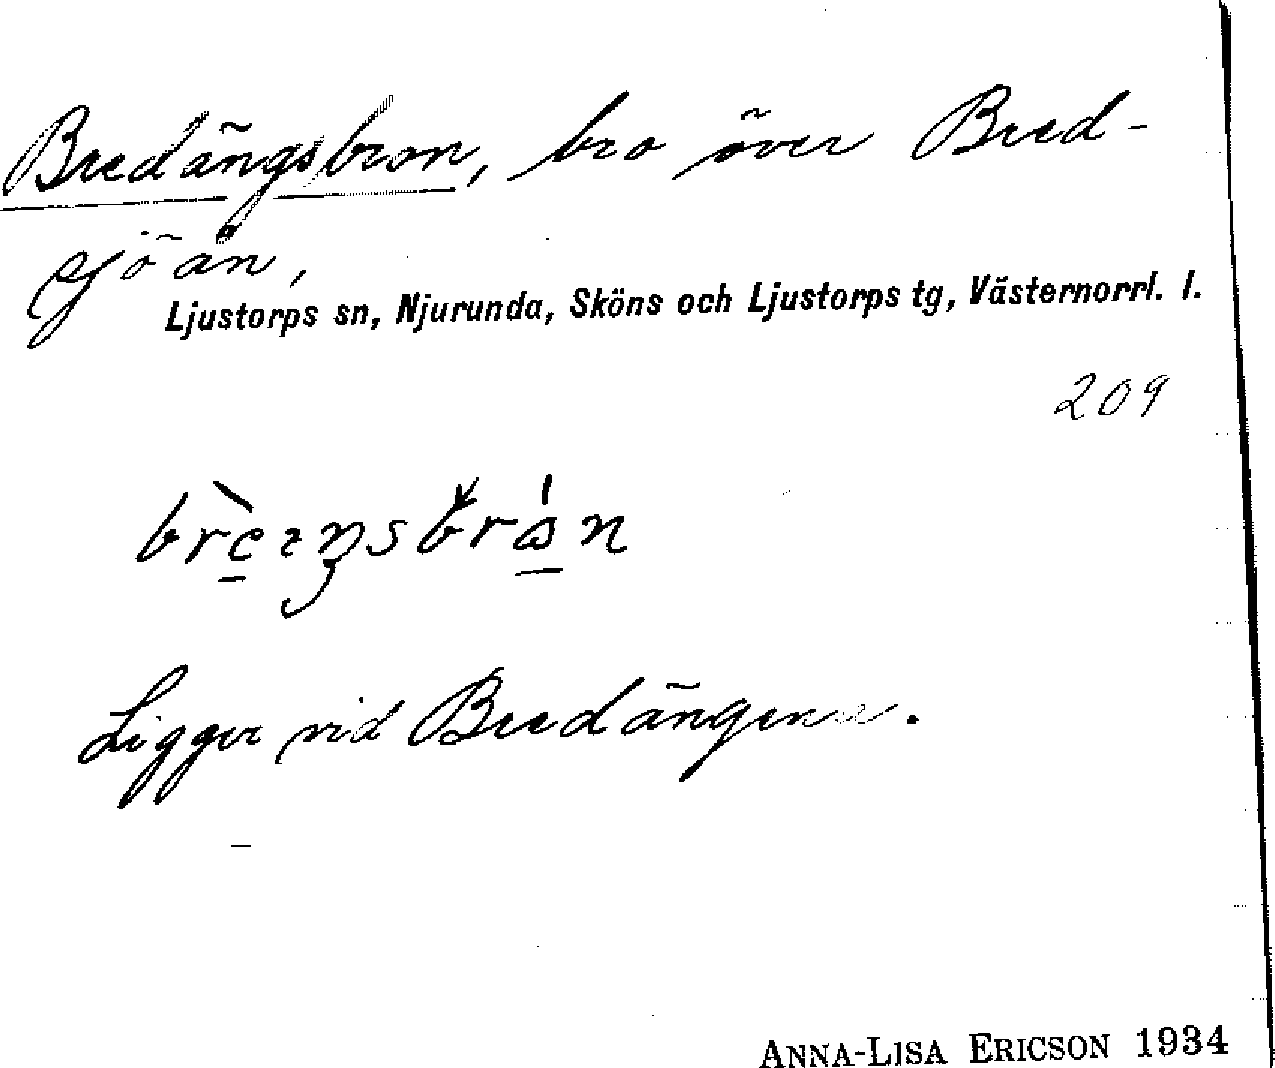 Bredängsbron, bro över Bred-
sjöån,
Ljustorps sn, Njurunda, Sköns och Ljustorps tg, Västernorrl. l.
209
Ligger vid Bredängena.
ANNA-LISA ERICSON 1934